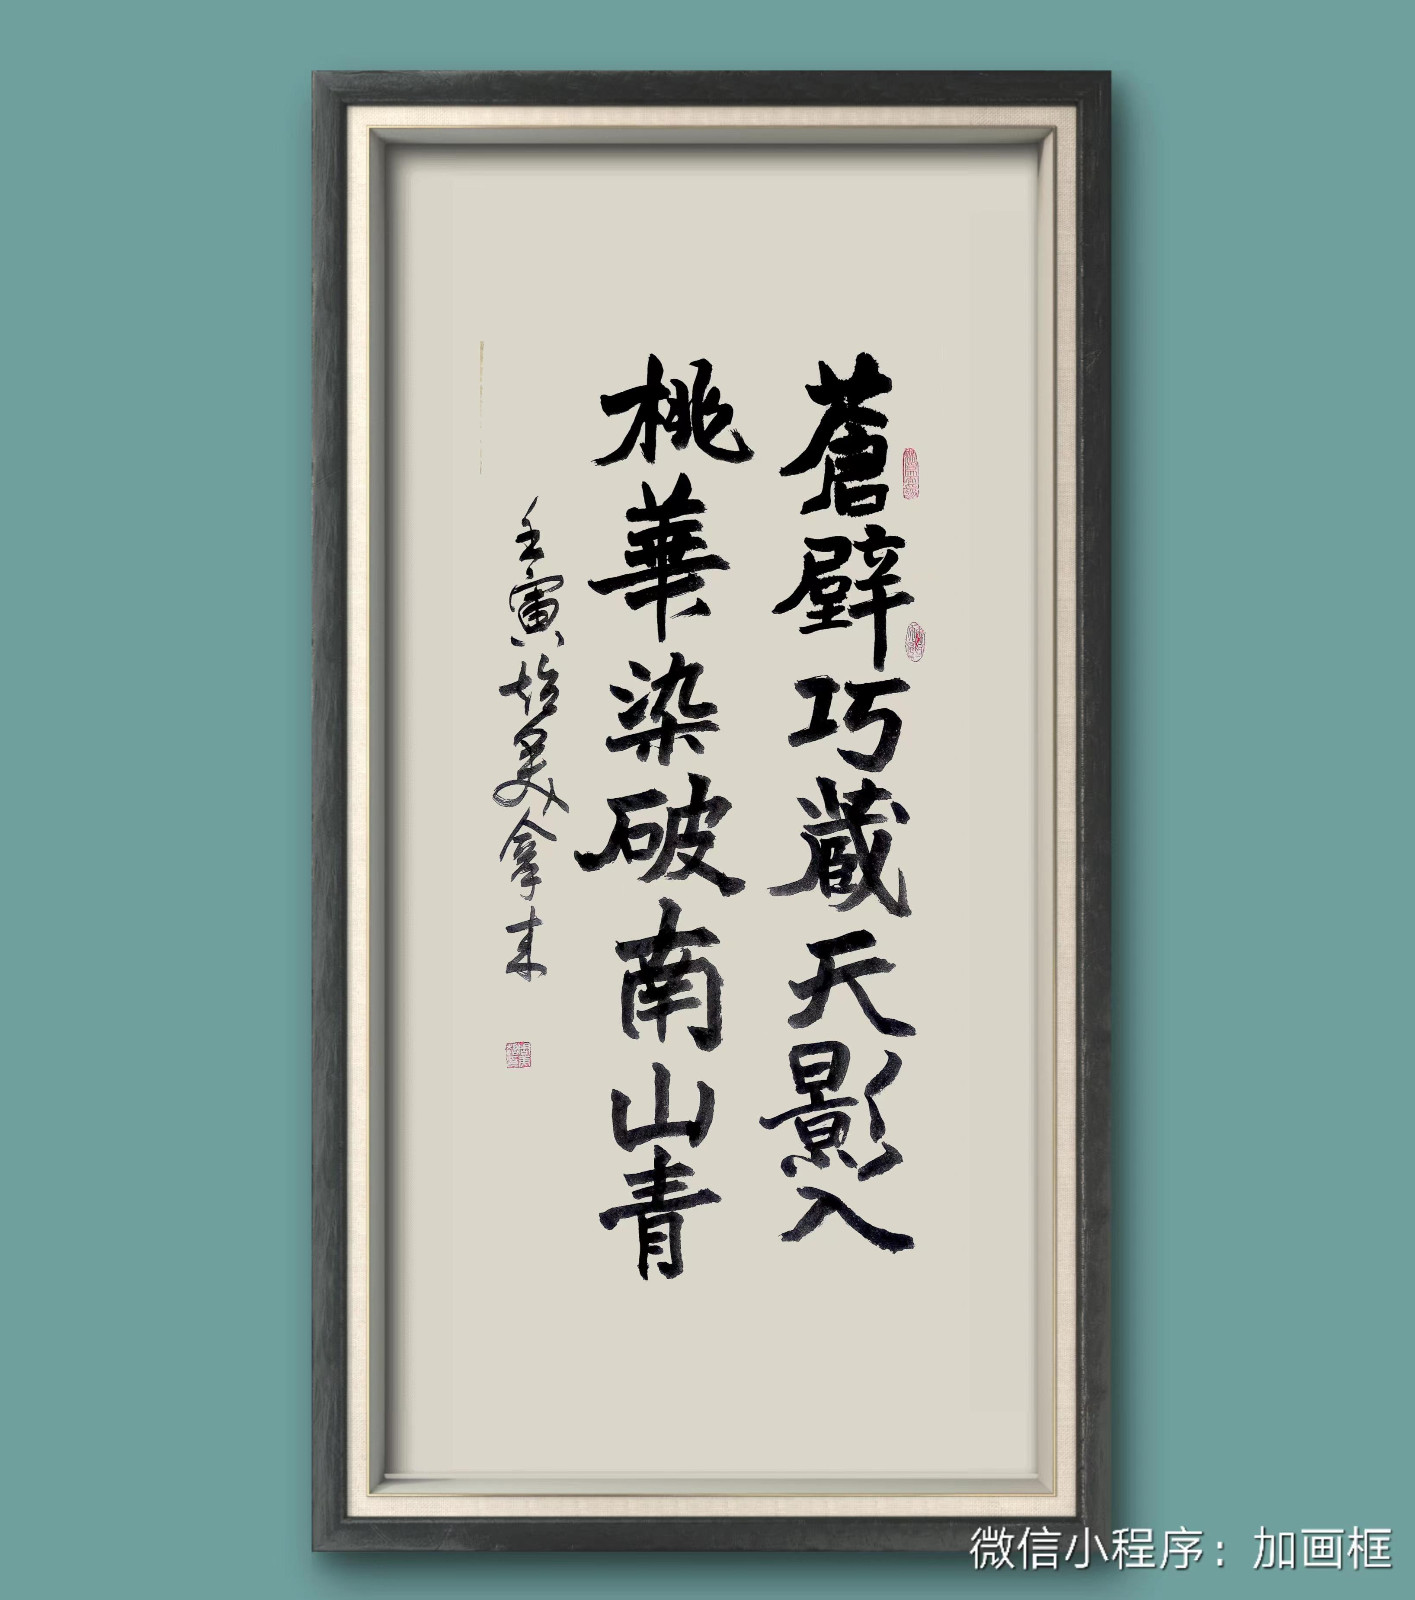 蒼壁巧蔵天影入
桃華染破南山青
壬寅拾美拿来
微信小程序：加画框